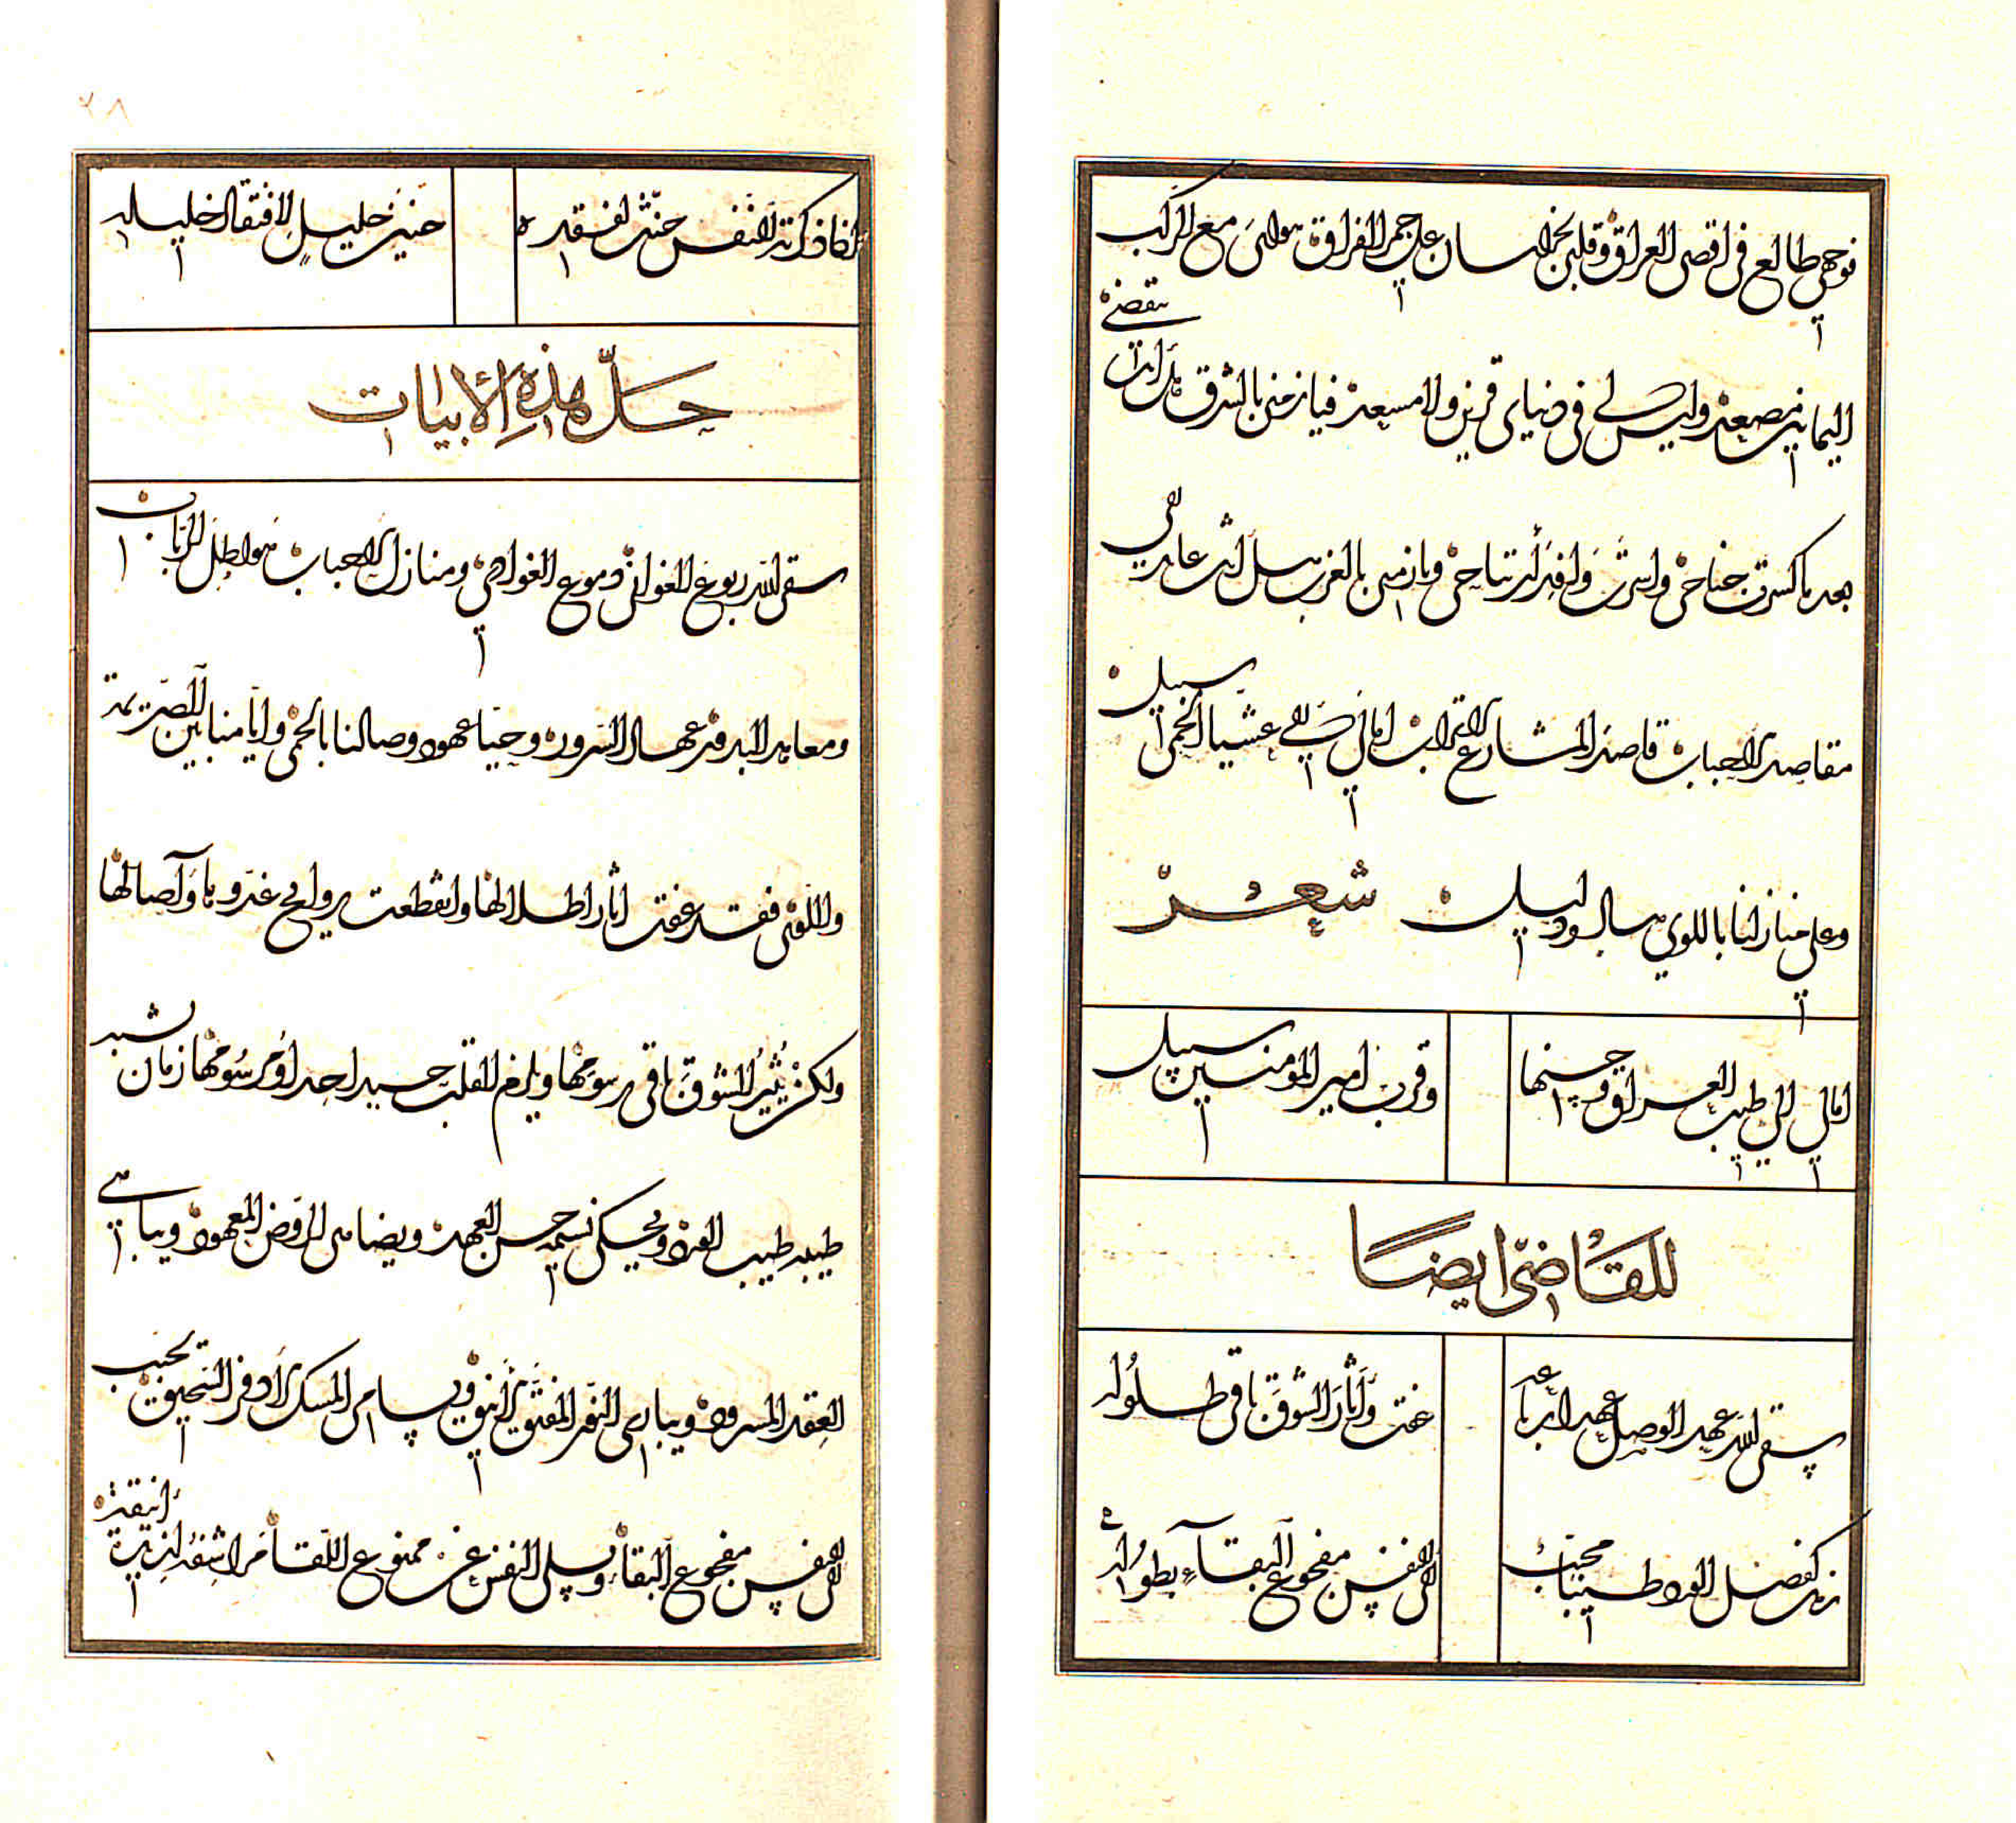 فوجهي طالع في اقصى العراق وقلبي بخراسان على جمر الفراق هواي مع الركب
اليمانين مصعد وليس لي في دنياي قرين ولا مسعد فيا زمني بالشرق هل انت
منقضي
بعد ما كسرت جناحي واسرت وافد ارتياحي ويا زمني بالغرب هل انت عايد لي
مقاصد الاحباب قاصد المشارع الاتراب امالي في عشيات الحمى سبيل
وعلى منازلنا باللوي هاد ودليل شعر
امالي الى طيب العراق وحسنها
وقرب امير المؤمنين سبيل
للقاضي ايضا
سقى الله عهد الوصل عهدا رباعه
عفت واثار الشوق باقي طلوله
زمان كفصل الورد طيبا محبب
الى نفس مفجوع البقاء بطوله
٢٨
اذا ذكرته النفس حنت لفقده
حنين خليل لافتقاد خليله
حل هذه الابيات
سقى الله ربوع الغواني دموع الغوادي ومنازل الاحباب هواطل الرباب
ومعاهد البدو عهاد السرور وحيا عهود وصالنا بالحمى وايامنا بين الصريمة
واللوى فقد عفت اثار اطلالها وانقطعت روايح غدوها وآصالها
ولكن يثير الشوق باقي رسومها ويلزم القلب حسيد احد اومر سومها زمان يشبه
طيبه طيب الورد ويحكي نسيمه حسن العهد ويضاهي الروض المعهود ويباهي
العقد المسرود ويباري النور المفتق الانيق ويسامي المسك الاذفر السحيق تحبب
الى نفس مفجوع البقاء ويسلي النفس عن ممنوع اللقاء مراشفه لذيذة
انيقة